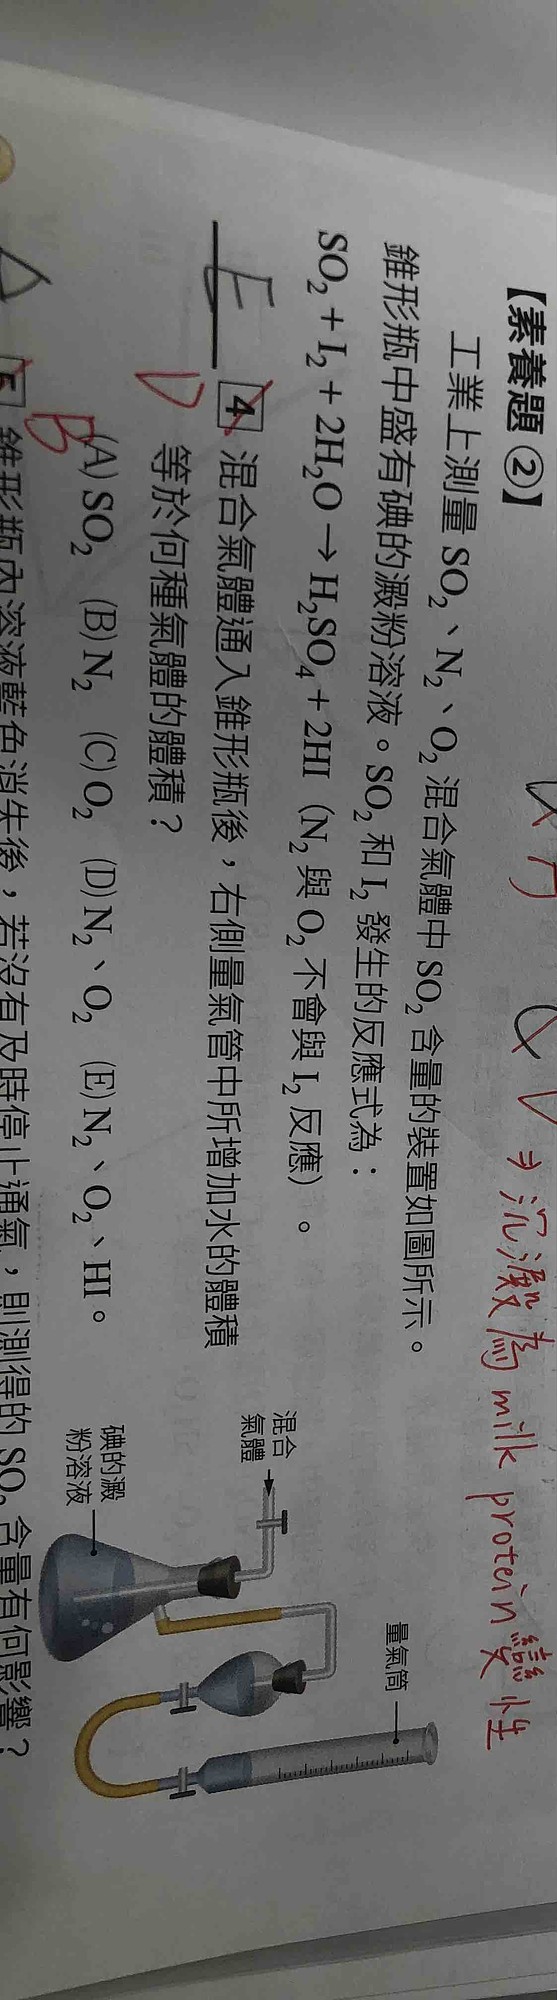 ⇒ 沉澱為 milk protein 變性
【素養題②】
工業上測量 SO₂、N₂、O₂ 混合氣體中 SO₂ 含量的裝置如圖所示。
錐形瓶中盛有碘的澱粉溶液。SO₂ 和 I₂ 發生的反應式為：
SO₂ + I₂ + 2H₂O → H₂SO₄ + 2HI（N₂ 與 O₂ 不會與 I₂ 反應）。
E
D
4 混合氣體通入錐形瓶後，右側量氣管中所增加水的體積
等於何種氣體的體積？
(A) SO₂ (B) N₂ (C) O₂ (D) N₂、O₂ (E) N₂、O₂、HI。
量氣筒
混合
氣體
碘的澱
粉溶液
A
B
5 錐形瓶內溶液藍色消失後，若沒有及時停止通氣，則測得的 SO₂ 含量有何影響？